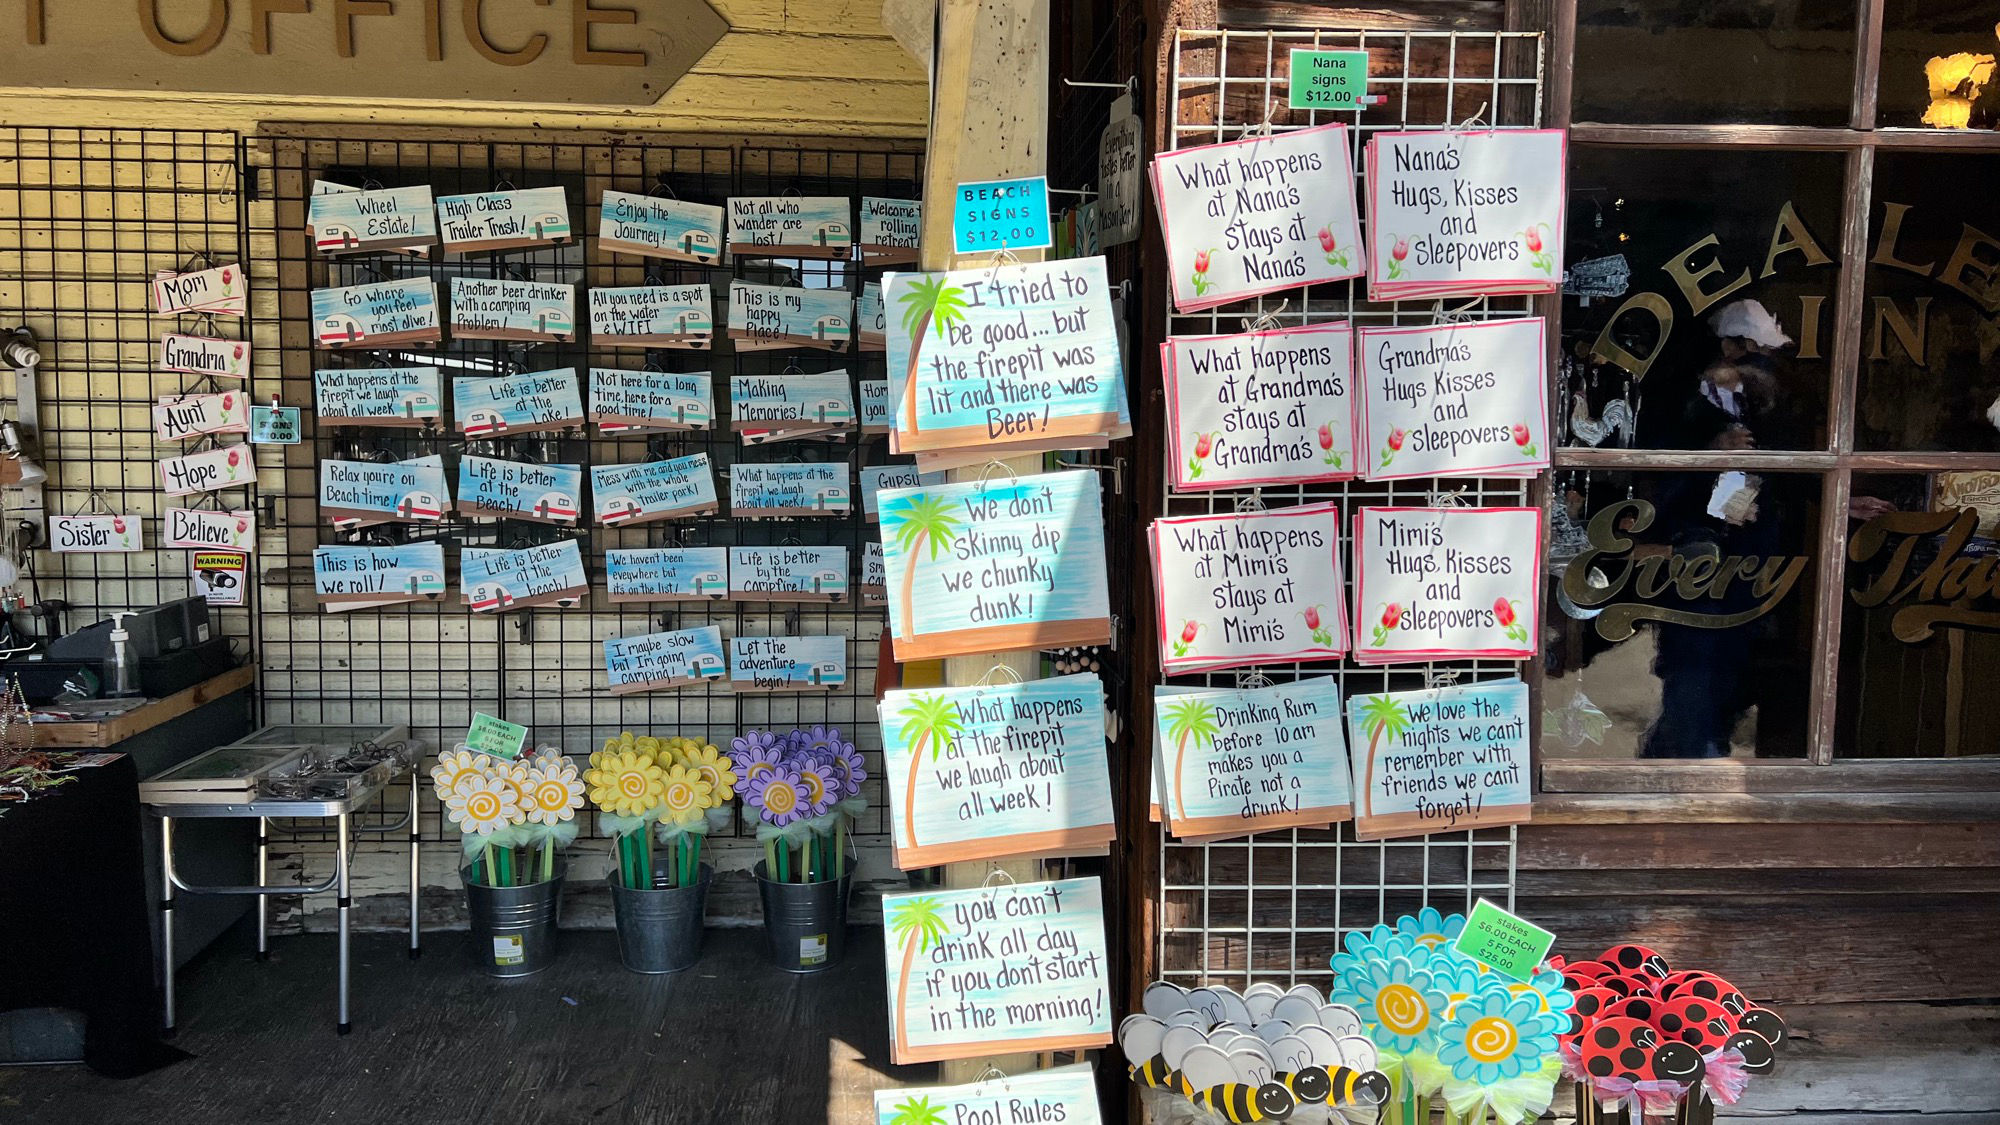 T OFFICE
Mom
Grandma
Aunt
Hope
Believe
Sister
WARNING
SIGNS
$10.00
Wheel
Estate!
High Class
Trailer Trash!
Enjoy the
Journey!
Not all who
Wander are
lost!
Welcome
rolling
retreat
Go where
you feel
most alive!
Another beer drinker
with a camping
Problem!
All you need is a spot
on the water
& WIFI
This is my
happy
Place!
What happens at the
firepit we laugh
about all week
Life is better
at the
Lake!
Not here for a long
time, here for a
good time!
Making
Memories!
Hom
you
Relax you're on
Beach time!
Life is better
at the
Beach!
Mess with me and you mess
with the whole
trailer park!
What happens at the
firepit we laugh
about all week!
Gypsy
This is how
we roll!
Life is better
at the
beach!
We haven't been
eveywhere but
its on the list!
Life is better
by the
campfire!
I maybe slow
but I'm going
camping!
Let the
adventure
begin!
stakes
$6.00 EACH
5 FOR
$25.00
BEACH
SIGNS
$12.00
I tried to
be good... but
the firepit was
lit and there was
Beer!
We don't
skinny dip
we chunky
dunk!
What happens
at the firepit
we laugh about
all week!
you can't
drink all day
if you don't start
in the morning!
Pool Rules
Everything
tastes better
in a
Mason Jar!
Nana
signs
$12.00
What happens
at Nana's
stays at
Nana's
Nana's
Hugs, Kisses
and
sleepovers
What happens
at Grandma's
stays at
Grandma's
Grandma's
Hugs Kisses
and
sleepovers
What happens
at Mimi's
stays at
Mimi's
Mimi's
Hugs, Kisses
and
sleepovers
Drinking Rum
before 10 am
makes you a
Pirate not a
drunk!
We love the
nights we can't
remember with
friends we can't
forget!
stakes
$6.00 EACH
5 FOR
$25.00
DEALE
IN
Every Thi